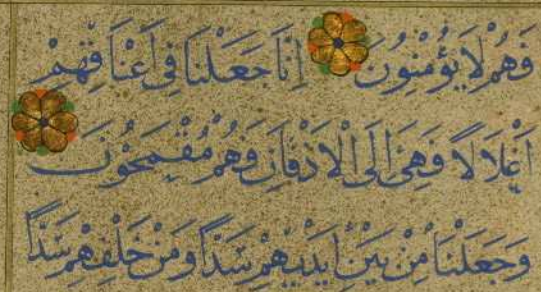 فَهُمْ لَا يُؤْمِنُونَ اِنَّا جَعَلْنَا فِى اَعْنَاقِهِمْ
اَغْلَالًا فَهِىَ اِلَى الْاَذْقَانِ فَهُمْ مُقْمَحُونَ
وَجَعَلْنَا مِنْ بَيْنِ اَيْدِيهِمْ سَدًّا وَمِنْ خَلْفِهِمْ سَدًّا